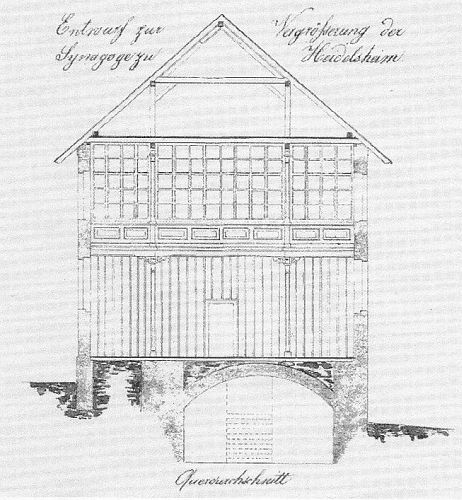 Entwurf zur Vergrößerung der
Synagoge zu Heidelsheim
Querdurchschnitt